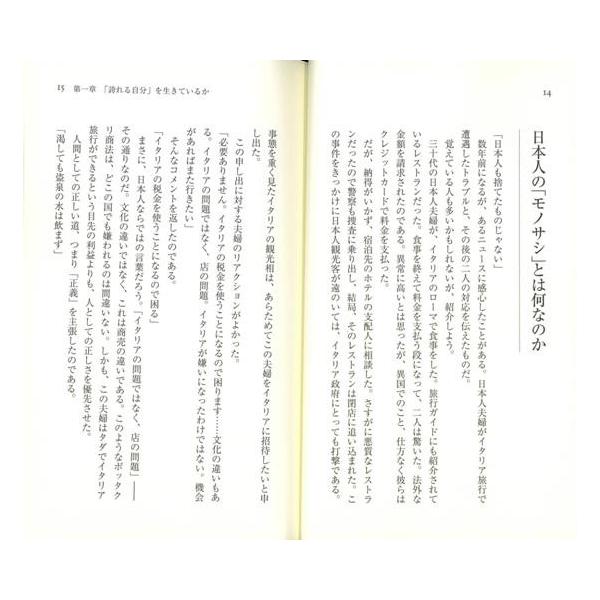 14
日本人の「モノサシ」とは何なのか
「日本人も捨てたものじゃない」
数年前になるが、あるニュースに感心したことがある。日本人夫婦がイタリア旅行で
遭遇したトラブルと、その後の二人の対応を伝えたものだ。
覚えている人も多いかもしれないが、紹介しよう。
三十代の日本人夫婦が、イタリアのローマで食事をした。旅行ガイドにも紹介されて
いるレストランだった。食事を終えて料金を支払う段になって、二人は驚いた。法外な
金額を請求されたのである。異常に高いとは思ったが、異国でのこと、仕方なく彼らは
クレジットカードで料金を支払った。
だが、納得がいかず、宿泊先のホテルの支配人に相談した。さすがに悪質なレストラ
ンだったので警察も捜査に乗り出し、結局、そのレストランは閉店に追い込まれた。こ
の事件をきっかけに日本人観光客が遠のいては、イタリア政府にとっても打撃である。
15 第一章 「誇れる自分」を生きているか
事態を重く見たイタリアの観光相は、あらためてこの夫婦をイタリアに招待したいと申
し出た。
この申し出に対する夫婦のリアクションがよかった。
「必要ありません。イタリアの税金を使うことになるので困ります……文化の違いもあ
る。イタリアの問題ではなく、店の問題。イタリアが嫌いになったわけではない。機会
があればまた行きたい」
そんなコメントを返したのである。
「イタリアの税金を使うことになるので困る」
まさに、日本人ならではの言葉だろう。「イタリアの問題ではなく、店の問題」――
その通りなのだ。文化の違いではなく、これは商売の違いである。このようなボッタク
リ商法は、どこの国でも嫌われるのは間違いない。しかも、この夫婦はタダでイタリア
旅行ができるという目先の利益よりも、人としての正しさを優先させた。
人間としての正しい道、つまり「正義」を主張したのである。
「渇しても盗泉の水は飲まず」